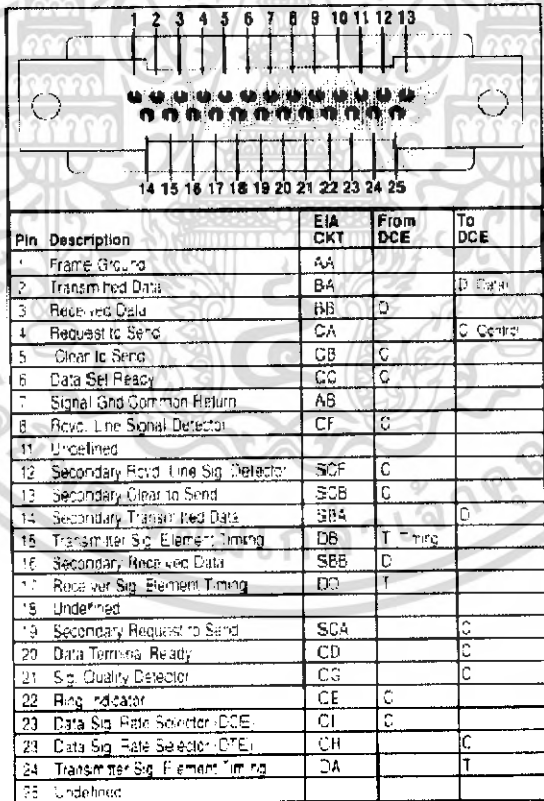 1 2 3 4 5 6 7 8 9 10 11 12 13
14 15 16 17 18 19 20 21 22 23 24 25
Pin Description EIA CKT From DCE To DCE
1 Frame Ground AA
2 Transmitted Data BA D Data
3 Received Data BB D
4 Request to Send CA C Control
5 Clear to Send CB C
6 Data Set Ready CC C
7 Signal Gnd Common Return AB
8 Rcvd. Line Signal Detector CF C
11 Undefined
12 Secondary Rcvd. Line Sig. Detector SCF C
13 Secondary Clear to Send SCB C
14 Secondary Transmitted Data SBA D
15 Transmitter Sig. Element Timing DB T Timing
16 Secondary Received Data SBB D
17 Receiver Sig. Element Timing DD T
18 Undefined
19 Secondary Request to Send SCA C
20 Data Terminal Ready CD C
21 Sig. Quality Detector CG C
22 Ring Indicator CE C
23 Data Sig. Rate Selector (DCE) CI C
23 Data Sig. Rate Selector (DTE) CH C
24 Transmitter Sig. Element Timing DA T
25 Undefined